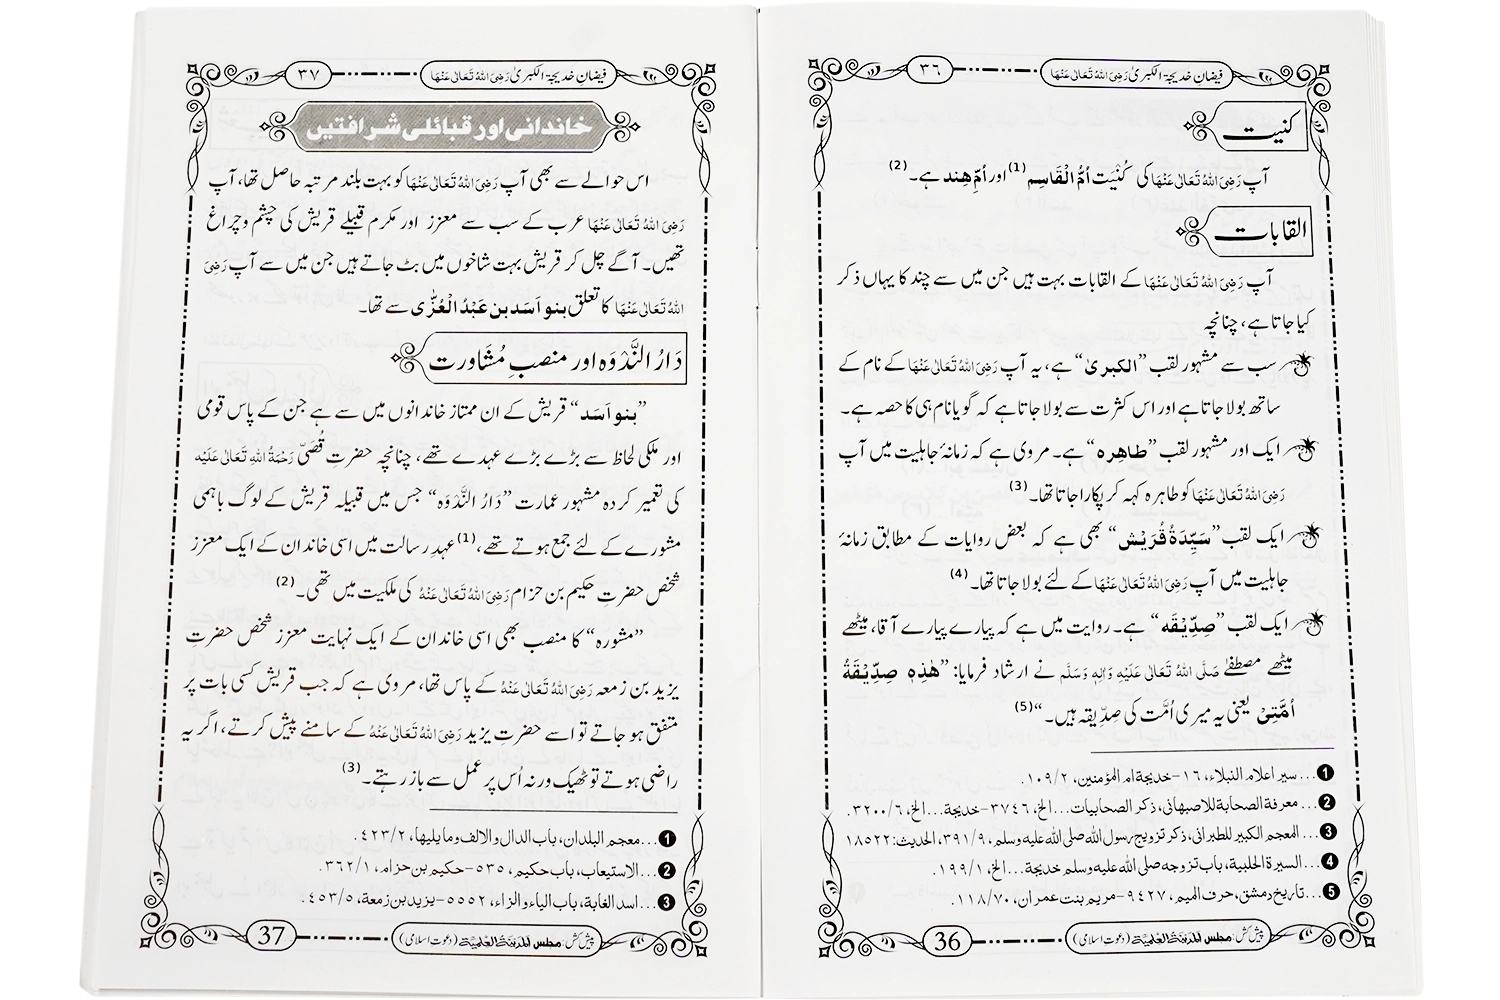 فیضانِ خدیجۃ الکبریٰ رَضِیَ اللہُ تَعَالٰی عَنْہَا
٣٦
کنیت
آپ رَضِیَ اللہُ تَعَالٰی عَنْہَا کی کُنْیَت اُمُّ الْقَاسِم(1) اور اُمِّ ھِند ہے۔(2)
القابات
آپ رَضِیَ اللہُ تَعَالٰی عَنْہَا کے القابات بہت ہیں جن میں سے چند کا یہاں ذکر
کیا جاتا ہے، چنانچہ
سب سے مشہور لقب ”الکبریٰ“ ہے، یہ آپ رَضِیَ اللہُ تَعَالٰی عَنْہَا کے نام کے
ساتھ بولا جاتا ہے اور اس کثرت سے بولا جاتا ہے کہ گویا نام ہی کا حصہ ہے۔
ایک اور مشہور لقب ”طاھِرہ“ ہے۔ مروی ہے کہ زمانۂ جاہلیت میں آپ
رَضِیَ اللہُ تَعَالٰی عَنْہَا کو طاہرہ کہہ کر پکارا جاتا تھا۔(3)
ایک لقب ”سَیِّدَۃُ قُرَیْش“ بھی ہے کہ بعض روایات کے مطابق زمانۂ
جاہلیت میں آپ رَضِیَ اللہُ تَعَالٰی عَنْہَا کے لئے بولا جاتا تھا۔(4)
ایک لقب ”صِدِّیْقَہ“ ہے۔ روایت میں ہے کہ پیارے پیارے آقا، میٹھے
میٹھے مصطفےٰ صَلَّی اللہُ تَعَالٰی عَلَیْہِ وَاٰلِہٖ وَسَلَّم نے ارشاد فرمایا: ”ھٰذِہٖ صِدِّیْقَۃُ
اُمَّتِیْ یعنی یہ میری اُمَّت کی صِدِّیقہ ہیں۔“(5)
1...سیر اعلام النبلاء، ١٦-خدیجة ام المؤمنین، ١٠٩/٢.
2...معرفة الصحابة للاصبهانی، ذکر الصحابیات...الخ، ٣٧٤٦-خدیجة...الخ، ٣٢٠٠/٦.
3...المعجم الکبیر للطبرانی، ذکر تزویج رسول الله صلی الله علیه وسلم، ٣٩١/٩، الحدیث: ١٨٥٢٢
4...السیرة الحلبیة، باب تزوجه صلی الله علیه وسلم خدیجة...الخ، ١٩٩/١.
5...تاریخ دمشق، حرف المیم، ٩٤٢٧-مریم بنت عمران، ١١٨/٧٠.
پیش کش: مجلس المدینۃ العلمیۃ (دعوتِ اسلامی)
36
فیضانِ خدیجۃ الکبریٰ رَضِیَ اللہُ تَعَالٰی عَنْہَا
٣٧
خاندانی اور قبائلی شرافتیں
اس حوالے سے بھی آپ رَضِیَ اللہُ تَعَالٰی عَنْہَا کو بہت بلند مرتبہ حاصل تھا، آپ
رَضِیَ اللہُ تَعَالٰی عَنْہَا عرب کے سب سے معزز اور مکرم قبیلے قریش کی چشم و چراغ
تھیں۔ آگے چل کر قریش بہت شاخوں میں بٹ جاتے ہیں جن میں سے آپ رَضِیَ
اللہُ تَعَالٰی عَنْہَا کا تعلق بنو اَسَد بن عَبْدُ الْعُزّٰی سے تھا۔
دَارُ النَّدْوَہ اور منصبِ مُشَاورت
”بنو اَسَد“ قریش کے ان ممتاز خاندانوں میں سے ہے جن کے پاس قومی
اور ملکی لحاظ سے بڑے بڑے عہدے تھے، چنانچہ حضرتِ قُصَیّ رَحْمَۃُ اللہِ تَعَالٰی عَلَیْہ
کی تعمیر کردہ مشہور عمارت ”دَارُ النَّدْوَہ“ جس میں قبیلہ قریش کے لوگ باہمی
مشورے کے لئے جمع ہوتے تھے،(1) عہدِ رسالت میں اسی خاندان کے ایک معزز
شخص حضرتِ حکیم بن حزام رَضِیَ اللہُ تَعَالٰی عَنْہُ کی ملکیت میں تھی۔(2)
”مشورہ“ کا منصب بھی اسی خاندان کے ایک نہایت معزز شخص حضرتِ
یزید بن زمعہ رَضِیَ اللہُ تَعَالٰی عَنْہُ کے پاس تھا، مروی ہے کہ جب قریش کسی بات پر
متفق ہو جاتے تو اسے حضرتِ یزید رَضِیَ اللہُ تَعَالٰی عَنْہُ کے سامنے پیش کرتے، اگر یہ
راضی ہوتے تو ٹھیک ورنہ اُس پر عمل سے باز رہتے۔(3)
1...معجم البلدان، باب الدال والالف وما یلیها، ٤٢٣/٢.
2...الاستیعاب، باب حکیم، ٥٣٥-حکیم بن حزام، ٣٦٢/١.
3...اسد الغابة، باب الیاء والزاء، ٥٥٥٢-یزید بن زمعة، ٤٥٣/٥.
پیش کش: مجلس المدینۃ العلمیۃ (دعوتِ اسلامی)
37